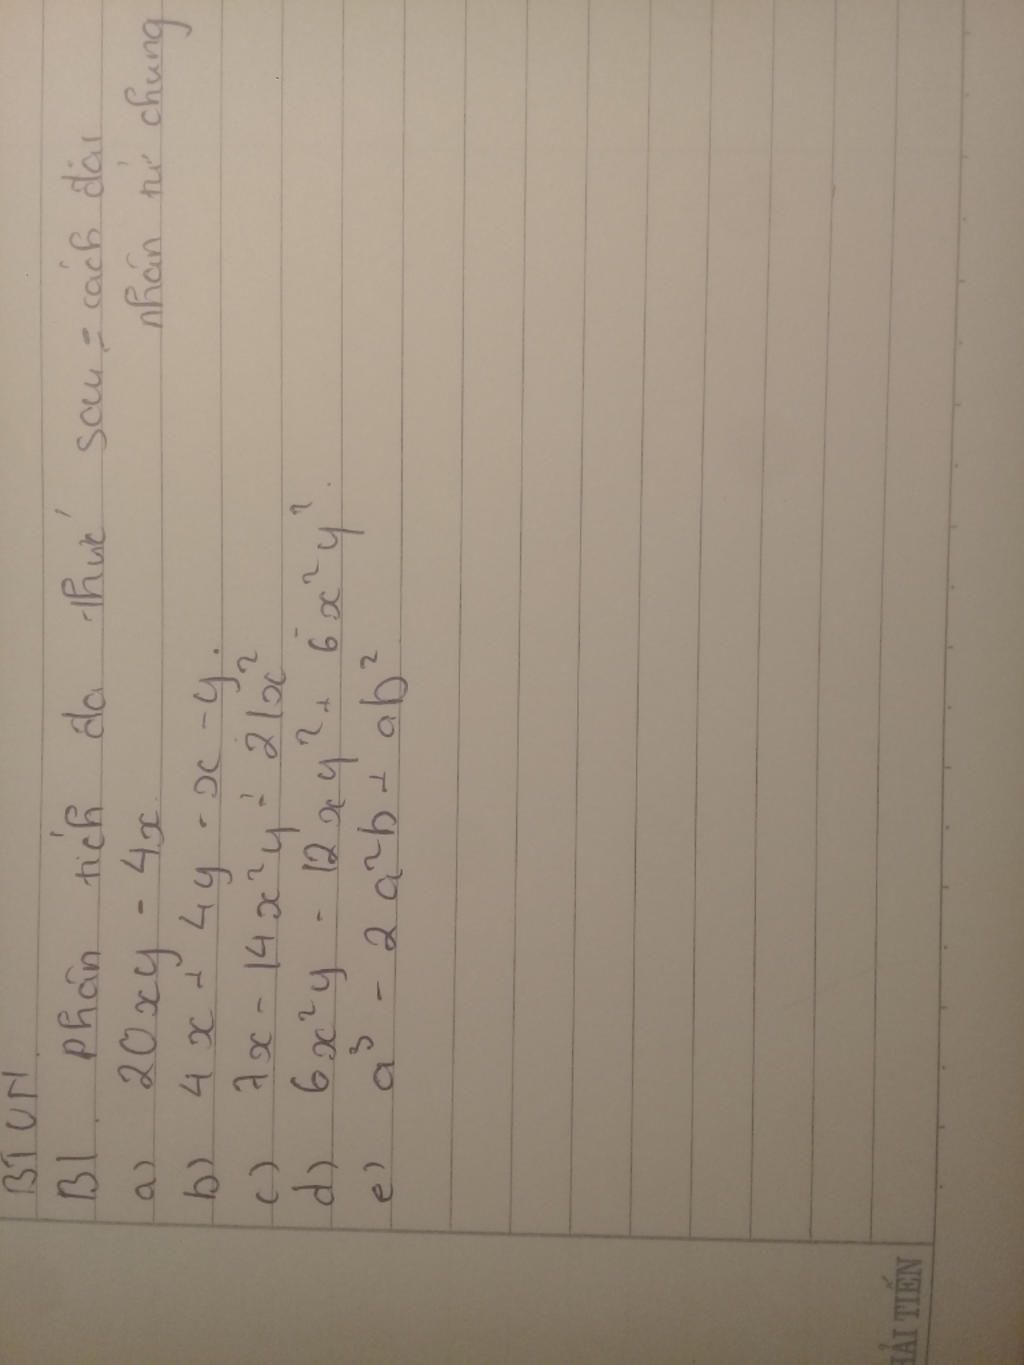 BTVN
B1. Phân tích đa thức sau = cách đặt
nhân tử chung
a) 20xy - 4x
b) 4x + 4y - x - y.
c) 7x - 14x²y - 21x²
d) 6x²y - 12xy² + 6x²y².
e) a³ - 2a²b + ab²
ẢI TIẾN